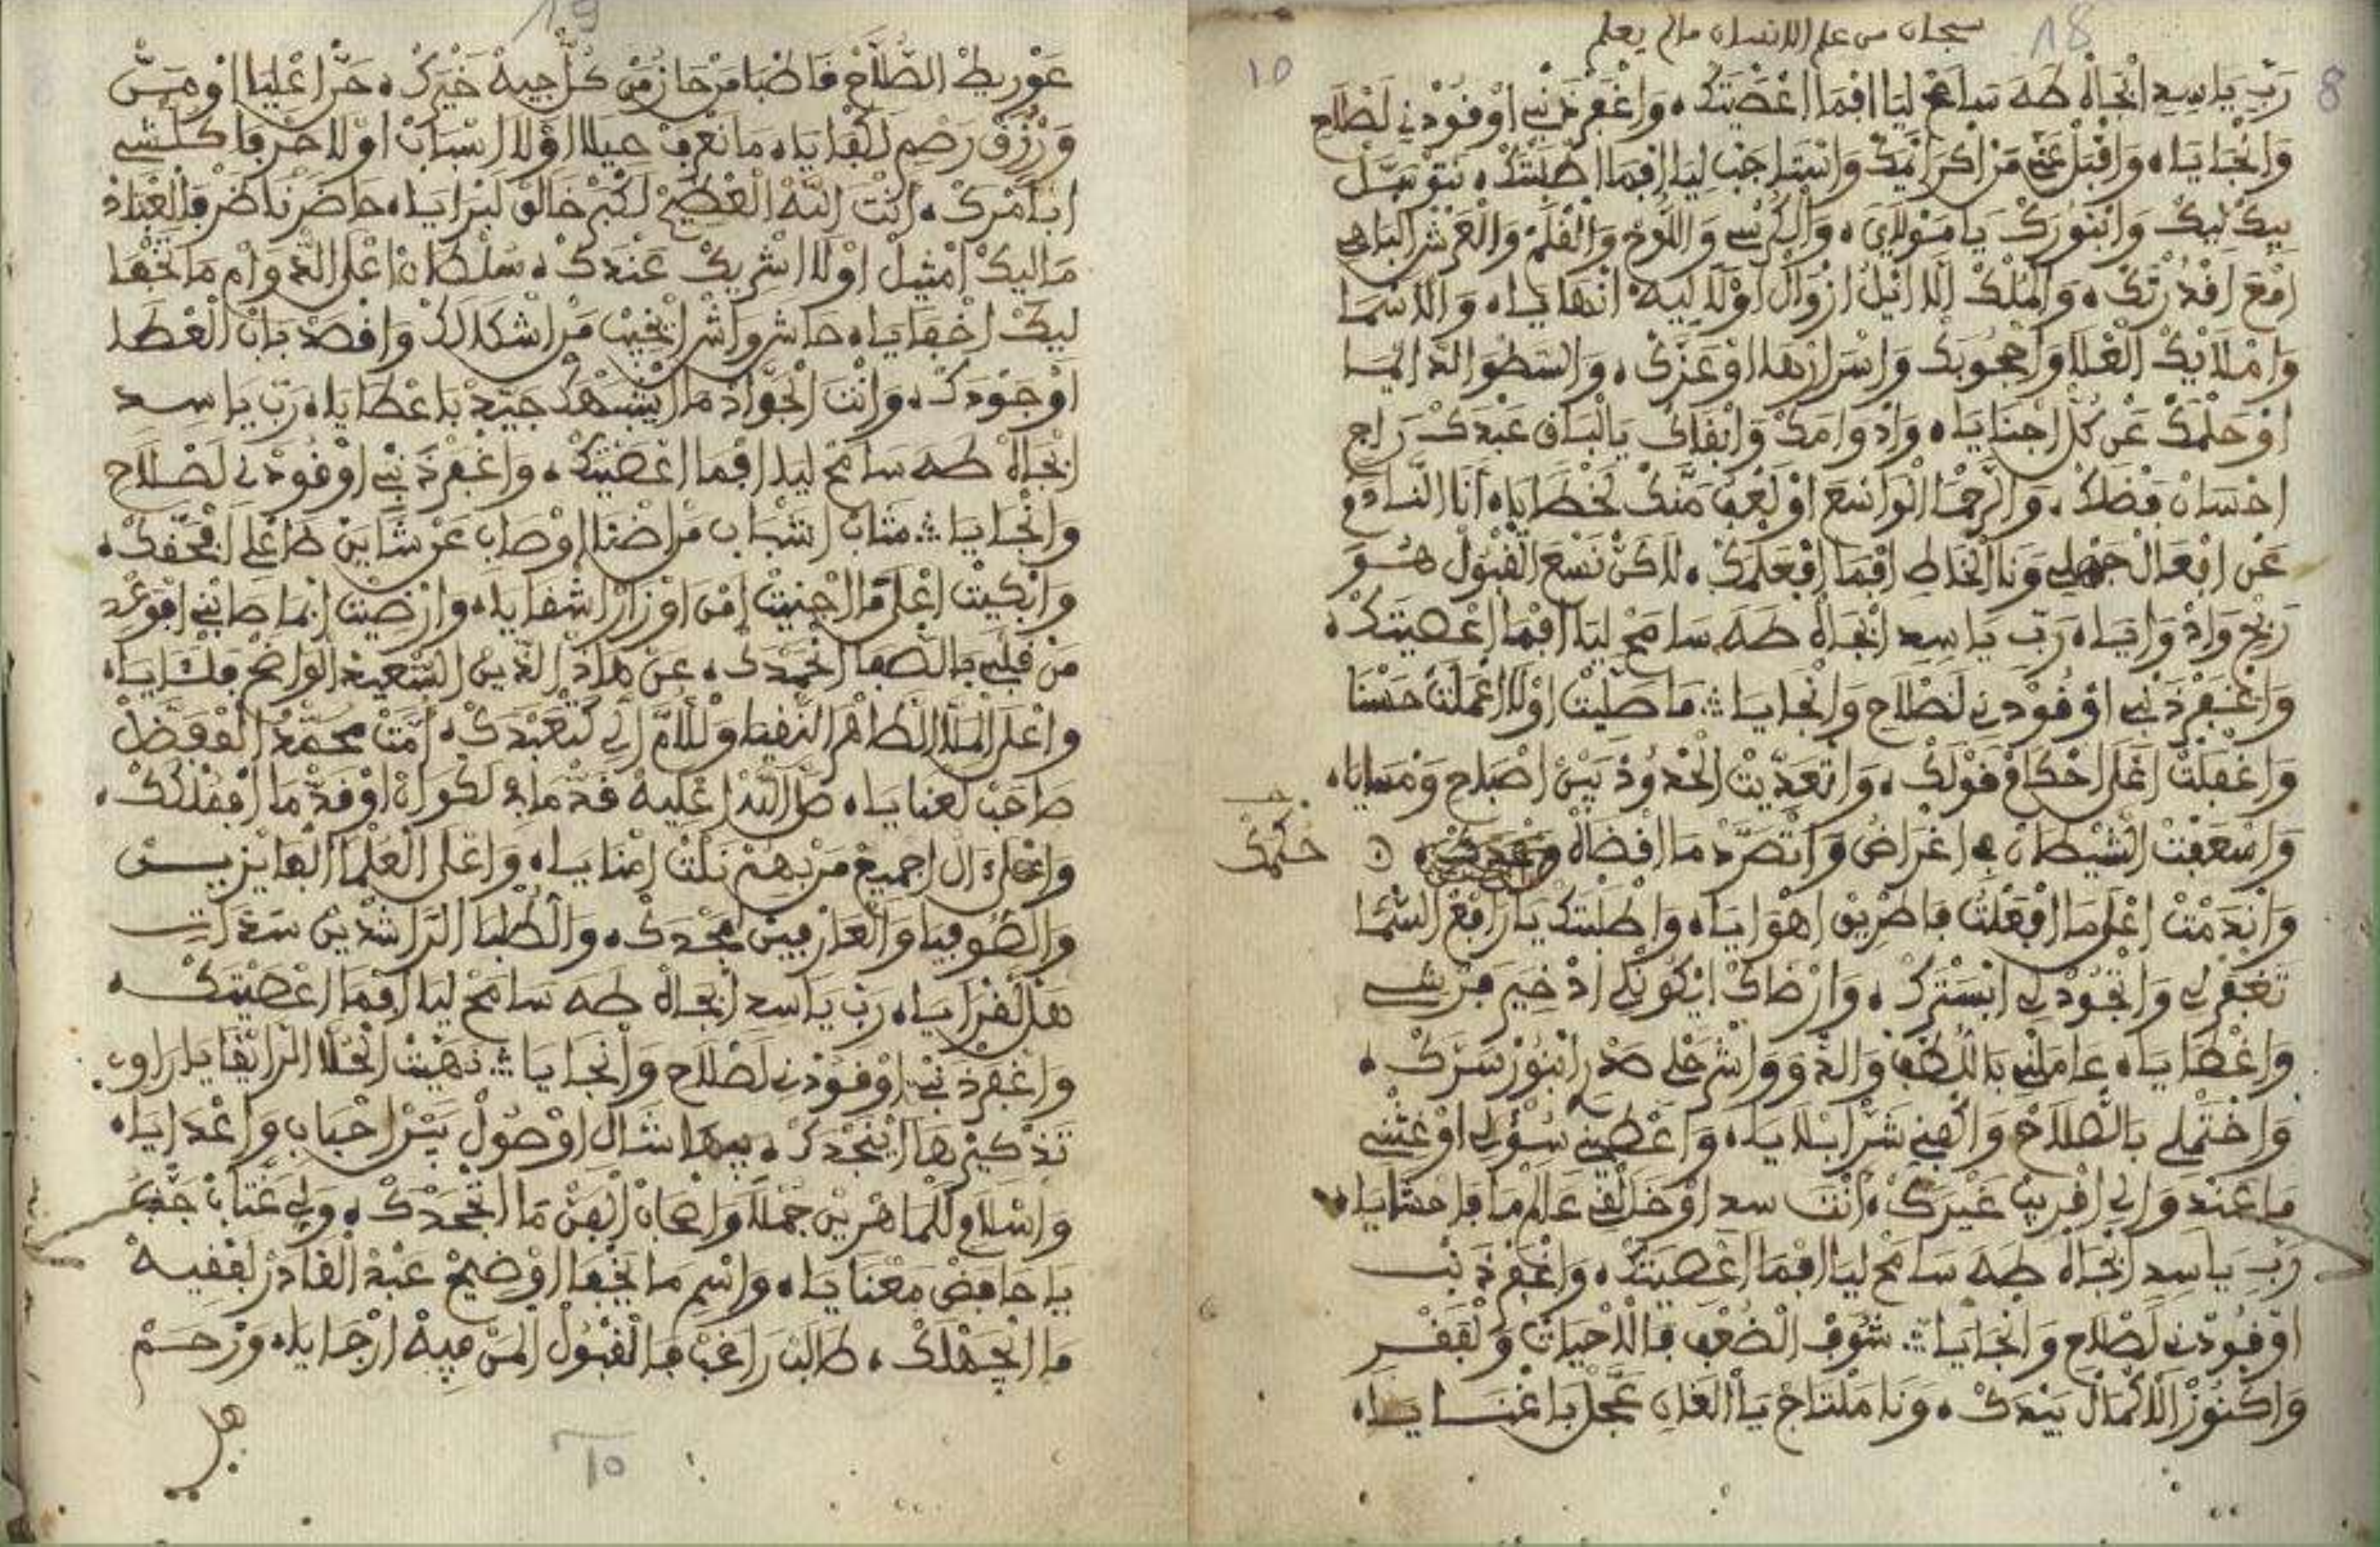 18
سبحان من علم الانسان مالم يعلم
8
10
رَبِّ يَا سِيد ابْجَاهْ طَهَ سَامَحْ لِيَا افْمَا اعْصَيْتَكْ، وَاغْفَرْ ذَنْبِي اوْفُودْنِي لَصْلَاحْ
وَانْجَايَا، وَاقْبَلْ عَنِّي مَنْ اكْرَايْمَكْ وَاسْتَاجَبْ لِيَا افْمَا اطْلَبْتَكْ، نَتْوَسَّلْ
بِيكْ لِيكْ وَابْنُورَكْ يَا مَوْلَايْ، وَالْكُرْسِي وَاللُّوحْ وَالْقْلَمْ وَالْعَرْشْ الْبَاهِي
امْعَ اقْدُرْتَكْ، وَالْمُلْكْ الَّا ايْلُ ازْوَالْ اوْلَا لِيهْ انْهَايَا، وَالَاسْمَا
وَامْلَايْكْ الْعْلَا وَاحْجُوبَكْ وَاسْرَارْهَا اوْعَزَّكْ، وَالسَّطْوَا الدَّايْمَا
اوْحَلْمَكْ عَنْ كُلّْ اجْنَايَا، وَادْوَامَكْ وَابْقَاكْ يَالْبَاقِ عَبْدَكْ رَاجِ
احْسَانْ فَضْلَكْ، وَالرَّحْمَا الْوَاسْعَ اوْلَعْفُ مَنَّكْ لَخْطَايَا، أَنَا النَّادَمْ
عَنْ افْعَالْ جَهْلِي وَنَا الْخَاطِ افْمَا افْعَلْمَكْ، لَاكَنْ نَسْعَ الْقْبُولْ هُــوَ
رَبْحْ وَادْوَايَا، رَبِّ يَا سِيد ابْجَاهْ طَهَ سَامَحْ لِيَا افْمَا اعْصَيْتَكْ،
وَاغْفَرْ ذَنْبِي اوْفُودْنِي لَصْلَاحْ وَانْجَايَا ؞ مَا صَلِّيتْ اوْلَا اعْمَلْتْ حَسْنَا
وَاغْفَلْتْ اعْلَى احْكَامْ قَوْلَكْ، وَاتْعَدِّيتْ الْحْدُودْ بَيْنْ اصْبَاحْ وَمْسَايَا،
وَاسْعَفْتْ الشَّيْطَانْ فِي اغْرَاضُ وَاتْصَرَّدْ مَا افْضَاهْ
حُكْمَكْ
وَانْدَمْتْ اعْلَى مَا افْعَلْتْ فَاطْرِيقْ اهْوَايَا، وَاطْلَبْتَكْ يَا رَافَعْ السّْمَا
تَغْفَرْ لِي وَاتْجُودْ لِي ابْسَتْرَكْ، وَارْضَاكْ ايْكُونْلِي ادْخِيرَ فَرْشِــي
وَاغْطَايَا، عَامَلْنِي بَاللُّطْفْ وَالدّْوَ وَاشْرَحْلِي صَدْرِ ابْنُورْ سَرَّكْ،
وَاخْتَمْلِي بَالصّْلَاحْ وَاكْفِنِي شَرّْ ابْلَايَا، وَاعْطِينِي سُؤْلِي اوْغَثْنِي
مَا عَنْدِ وَالِي اقْرِيبْ غَيْرَكْ، أَنْتَ سيد اوْخَالْقِ عَالَمْ مَا فَاحْشَايَا،
رَبِّ يَا سِيد ابْجَاهْ طَهَ سَامَحْ لِيَا افْمَا اعْصَيْتَكْ، وَاغْفَرْ ذَنْبِــي
اوْفُودْنِي لَصْلَاحْ وَانْجَايَا ؞ شُوفْ الضُّعْفْ فَالَاحْيَاتْ وَلْفَقْــرْ
وَاكْنُوزْ الَاكْمَالْ بِيَدَّكْ، وَنَا مَلْتَاجْ يَا الْغَانِ عَجَّلْ بَاغْنَــايَا،
19
عَوْرِيطْ الصّْلَاحْ فَاصْبَا مَنْ حَازْ مَنْ كُلّْ جِيهْ خَيْرَكْ، حَرَّا اعْلِيَا اوْمَسّْ
وَرْزُقْ رَحِيمْ لَكْفَايَا، مَا نَعْرَفْ حِيلَا اوْلَا اسْبَابْ اوْلَا حَرْفَا كَلْشِي
ابْأَمْرَكْ، أَنْتَ اللَّهْ الْعْظِيمْ لَكْبِيرْ خَالَقْ لَبْرَايَا، حَاضَرْ نَاضَرْ فَالْعْبَادْ
مَا لِيكْ امْثِيلْ اوْلَا اشْرِيكْ عَنْدَكْ، سُلْطَانْ اعْلَى الدّْوَامْ مَا تَخْفَا
لِيكْ اخْفَايَا، حَاشَ وَاشْ ايْخِيبْ مَنْ اشْكَا لَكْ وَاقْصَدْ بَابْ الْعْطَا
اوْجُودَكْ، وَانْتَ الْجَوَّادْ مَا ايْشَبْهَكْ جَيِّدْ بَاعْطَايَا، رَبِّ يَا سيد
ابْجَاهْ طَهَ سَامَحْ لِيَا افْمَا اعْصَيْتَكْ، وَاغْفَرْ ذَنْبِي اوْفُودْنِي لَصْلَاحْ
وَانْجَايَا ؞ مَتَابْ اشْبَابِ مَرْ اضْنَا اوْصَابِ عَنْ شَايَنْ طَاعْلَى ابْحَقَّكْ،
وَابْكِيتْ اعْلَى مَا اجْنِيتْ امْنْ اوْزَارْ اشْقَايَا، وَارْضِيتْ ابْمَا صَابْنِي افْوَعْدِ
مَنْ قَلْبِي بَالصّْفَا انْحَمْدَكْ، عَنْ هَادْ الدِّينْ السّْعِيدْ الْوَاضَحْ فَلْـايَا،
وَاعْلَى الْمَلَّا الطَّاهْرَا النّْقِيَا وَلْلَامَّ الِّي كَتَعْبْدَكْ، امَّتْ مُحَمَّدْ الْمْفَضَّلْ
صَاحَبْ لَعْنَايَا، صَلَّى اللَّهْ اعْلِيهْ قَدّْ مَا فِي لَكْوَانْ اوْقَدّْ مَا افْمُلْكَكْ،
وَاعْلَى ءَالْ اجْمِيعْ مَنْ بِهُمْ نَلْتْ امْنَايَا، وَاعْلَى الْعُلْمَا الْفَايْزِيــنْ
وَالصُّوفِيَا وَالْعَارْفِينْ بَمْجَدَكْ، وَالطُّلْبَا الرَّاشْدِينْ سَدَاتِــي
هَلْ لَقْرَايَا، رَبِّ يَا سيد ابْجَاهْ طَهَ سَامَحْ لِيَا افْمَا اعْصَيْتَكْ،
وَاغْفَرْ ذَنْبِي اوْفُودْنِي لَصْلَاحْ وَانْجَايَا ؞ نَهِّيتْ الْحْلَّا الرَّايْقَا يَا رَاوِي
تَذْكِيرْهَا ايْنَجْدَكْ، بِيهَا اشَّالْ اوْصُولْ بَيْنْ احْبَابِ وَاعْدَايَا،
وَاسْلَامْ لَلْمَاهْرِينْ جُمْلَا وَاصْحَابْ الْفَنّْ مَا اتْجَحْدَكْ، وَلِي عَتَابْ جَنّْبُ
يَا حَافَضْ مَعْنَايَا، وَاسْمِ مَا يَخْفَا اوْضِيحْ عَبْدْ الْقَادَرْ لَفْقِيــهْ
مَا ايْجَهْلَكْ، طَالَبْ رَاغَبْ فَالْقْبُولْ الْمَنْ فِيهْ ارْجَايَا، وَرْحَــمْ
هل
10